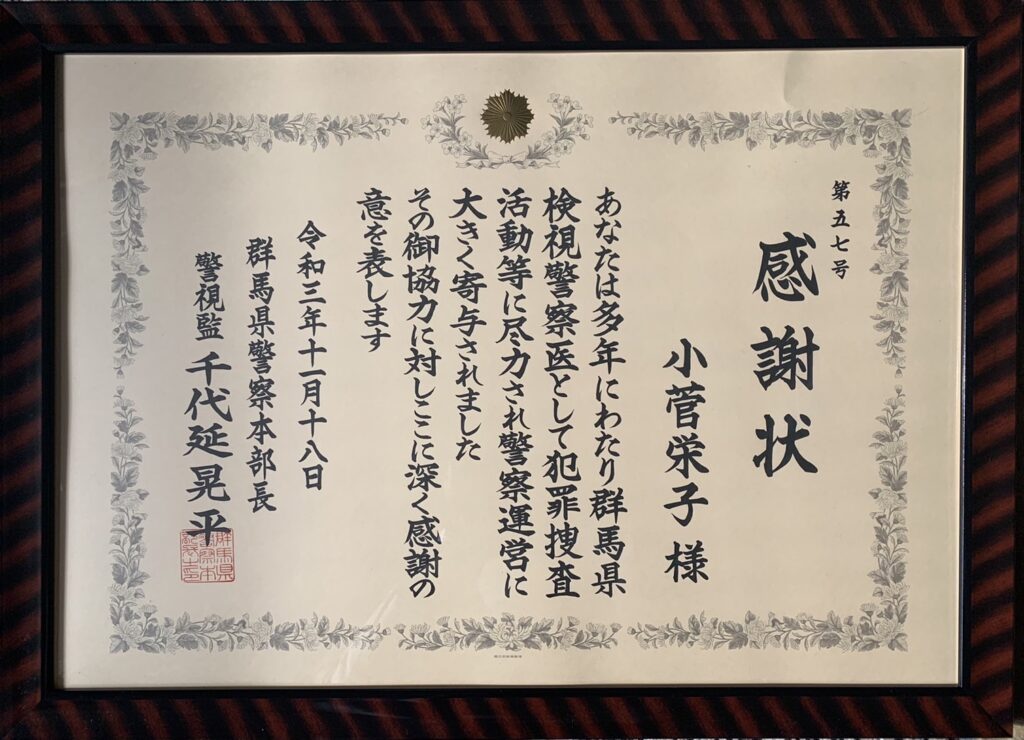 第五七号
感謝状
小菅栄子様
あなたは多年にわたり群馬県
検視警察医として犯罪捜査
活動等に尽力され警察運営に
大きく寄与されました
その御協力に対しここに深く感謝の
意を表します
令和三年十一月十八日
群馬県警察本部長
警視監 千代延晃平